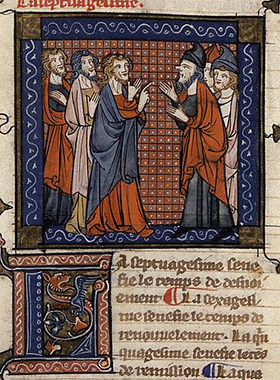 La septuagesime.
La septuagesime sene
fie le temps de desuoi
ement La sexagesi
me senefie le temps de
renouuelement. La qui
quagesime senefie le tēs
de remission La qua